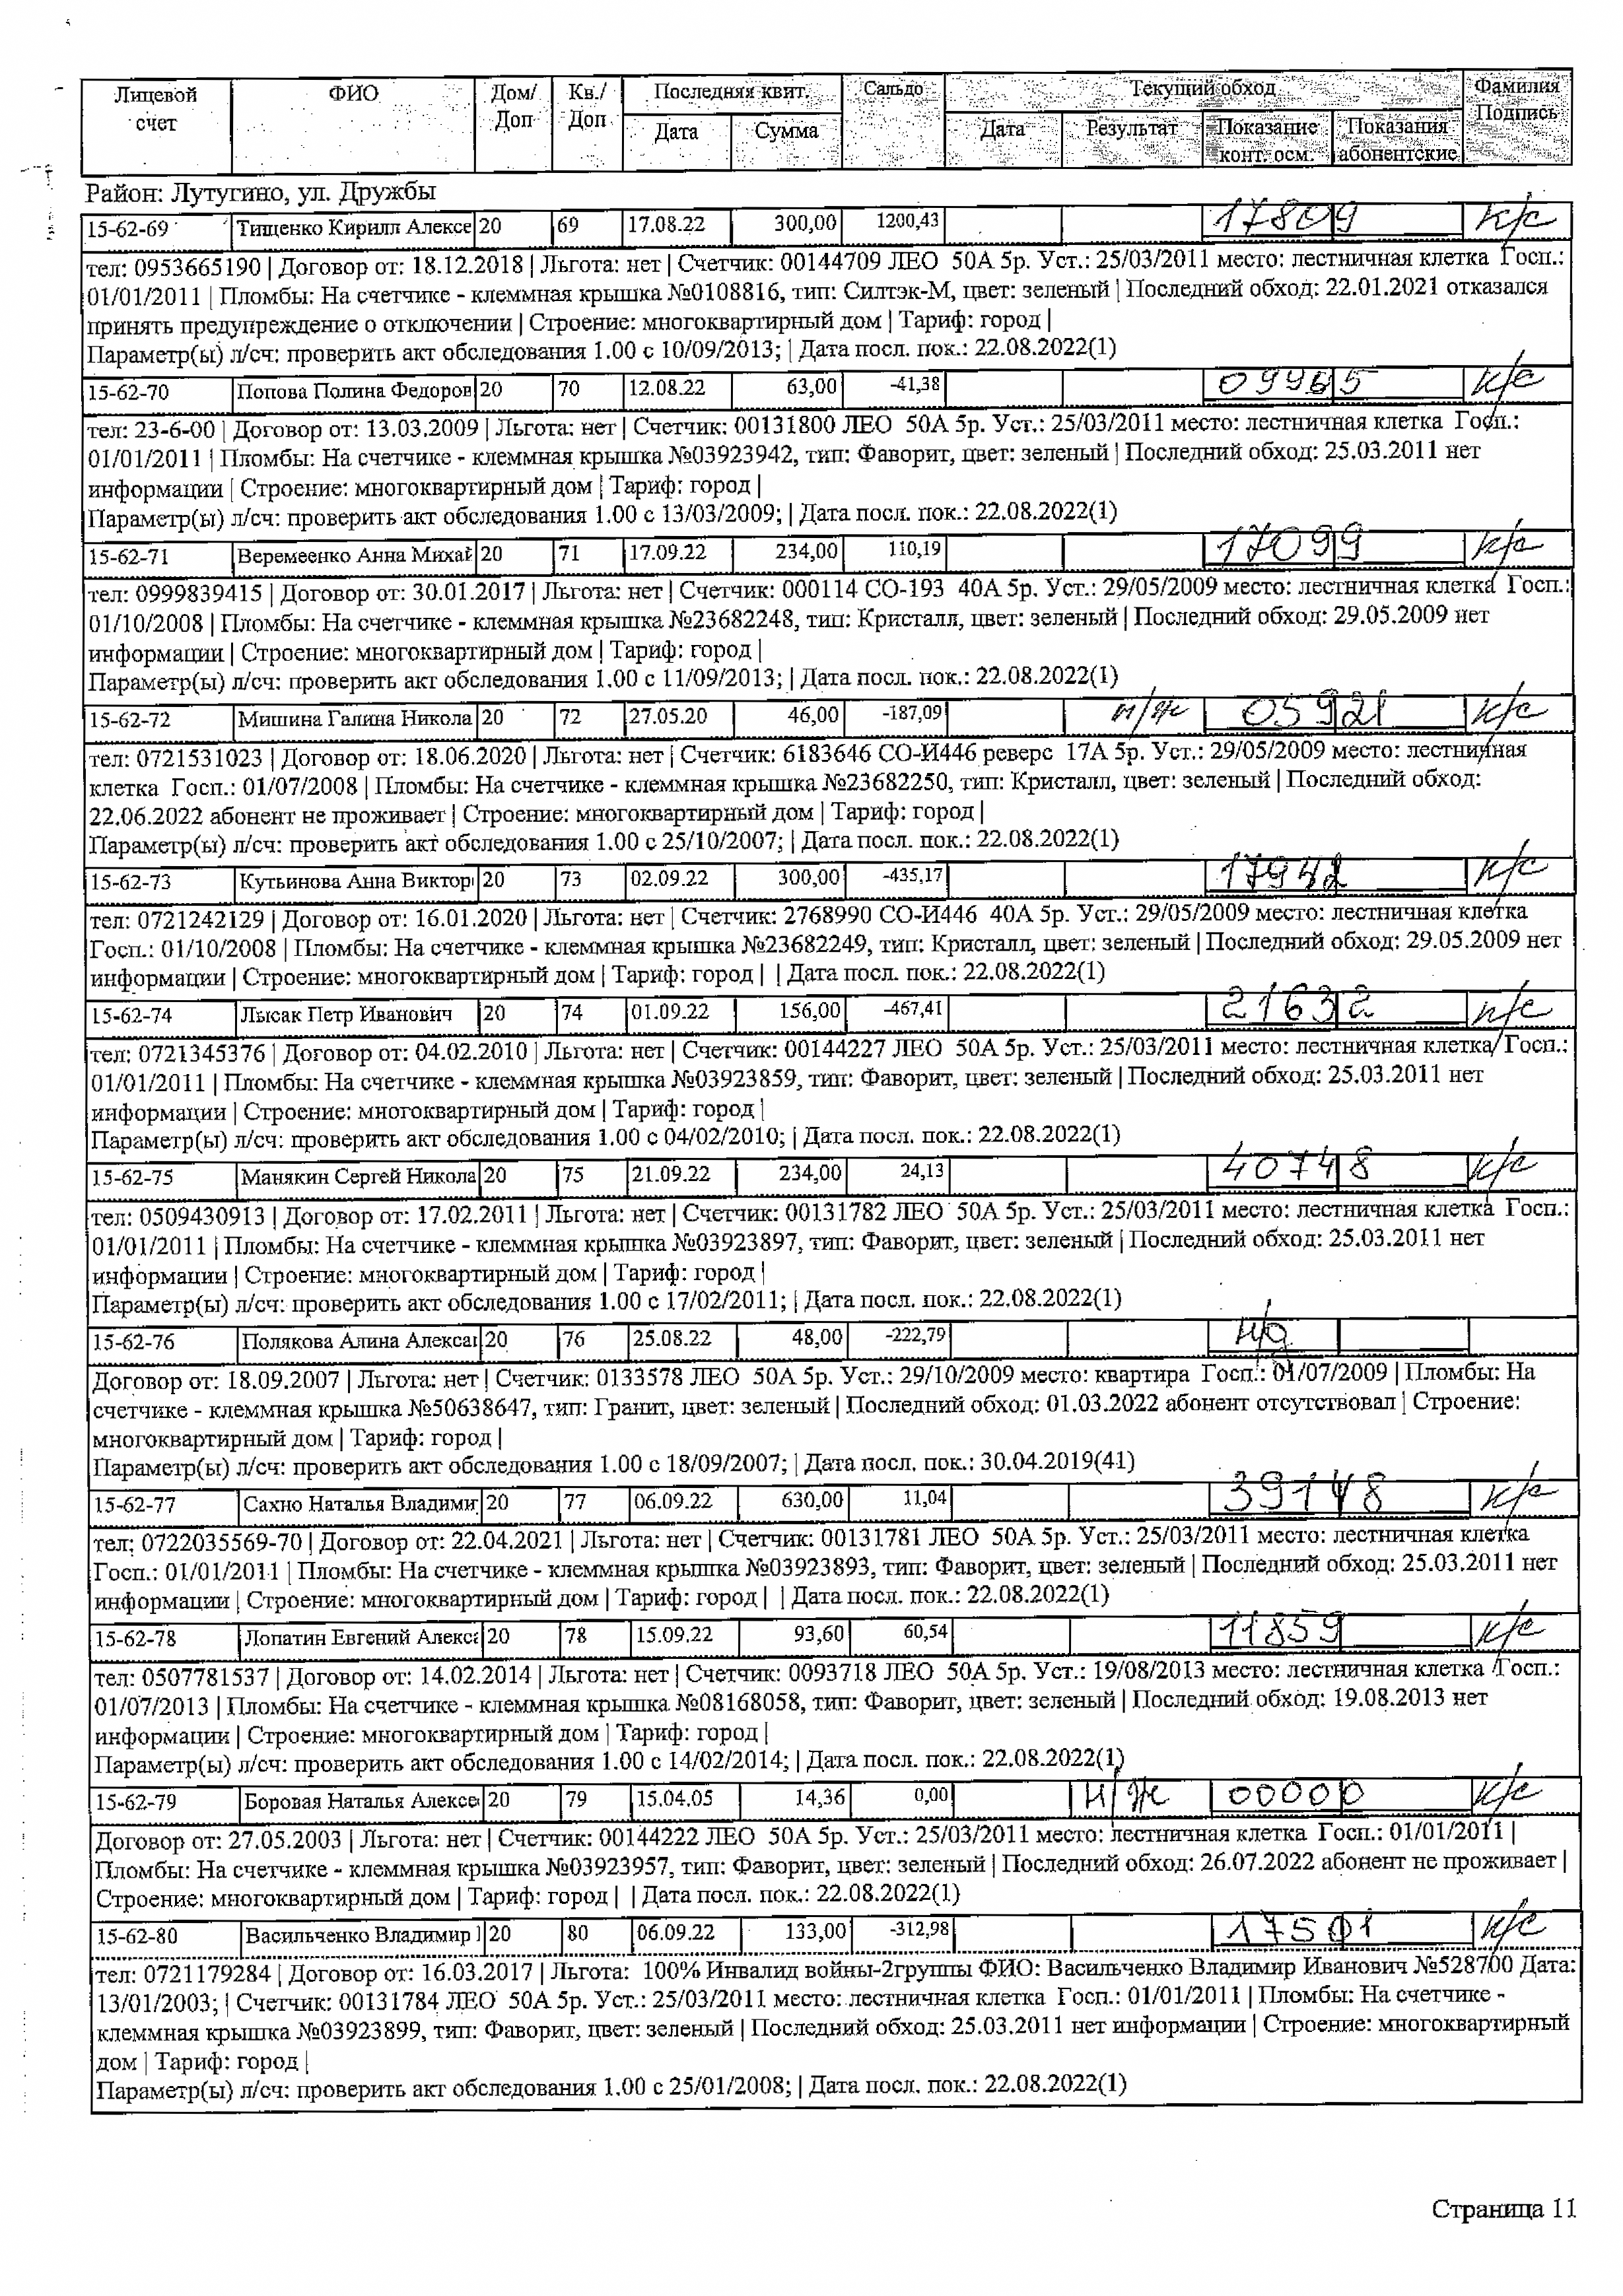 Лицевой счет ФИО Дом/Доп Кв./Доп Последняя квит. Сальдо Текущий обход Фамилия Подпись
Дата Сумма Дата Результат Показание конт. осм. Показания абонентские
Район: Лутугино, ул. Дружбы
15-62-69 Тищенко Кирилл Алексе 20 69 17.08.22 300,00 1200,43 17809 к/с
тел: 0953665190 | Договор от: 18.12.2018 | Льгота: нет | Счетчик: 00144709 ЛЕО 50А 5р. Уст.: 25/03/2011 место: лестничная клетка Госп.:
01/01/2011 | Пломбы: На счетчике - клеммная крышка №0108816, тип: Силтэк-М, цвет: зеленый | Последний обход: 22.01.2021 отказался
принять предупреждение о отключении | Строение: многоквартирный дом | Тариф: город |
Параметр(ы) л/сч: проверить акт обследования 1.00 с 10/09/2013; | Дата посл. пок.: 22.08.2022(1)
15-62-70 Попова Полина Федоров 20 70 12.08.22 63,00 -41,38 09965 к/с
тел: 23-6-00 | Договор от: 13.03.2009 | Льгота: нет | Счетчик: 00131800 ЛЕО 50А 5р. Уст.: 25/03/2011 место: лестничная клетка Госп.:
01/01/2011 | Пломбы: На счетчике - клеммная крышка №03923942, тип: Фаворит, цвет: зеленый | Последний обход: 25.03.2011 нет
информации | Строение: многоквартирный дом | Тариф: город |
Параметр(ы) л/сч: проверить акт обследования 1.00 с 13/03/2009; | Дата посл. пок.: 22.08.2022(1)
15-62-71 Веремеенко Анна Михай 20 71 17.09.22 234,00 110,19 17099 к/с
тел: 0999839415 | Договор от: 30.01.2017 | Льгота: нет | Счетчик: 000114 СО-193 40А 5р. Уст.: 29/05/2009 место: лестничная клетка Госп.:
01/10/2008 | Пломбы: На счетчике - клеммная крышка №23682248, тип: Кристалл, цвет: зеленый | Последний обход: 29.05.2009 нет
информации | Строение: многоквартирный дом | Тариф: город |
Параметр(ы) л/сч: проверить акт обследования 1.00 с 11/09/2013; | Дата посл. пок.: 22.08.2022(1)
15-62-72 Мишина Галина Никола 20 72 27.05.20 46,00 -187,09 н/ж 05921 к/с
тел: 0721531023 | Договор от: 18.06.2020 | Льгота: нет | Счетчик: 6183646 СО-И446 реверс 17А 5р. Уст.: 29/05/2009 место: лестничная
клетка Госп.: 01/07/2008 | Пломбы: На счетчике - клеммная крышка №23682250, тип: Кристалл, цвет: зеленый | Последний обход:
22.06.2022 абонент не проживает | Строение: многоквартирный дом | Тариф: город |
Параметр(ы) л/сч: проверить акт обследования 1.00 с 25/10/2007; | Дата посл. пок.: 22.08.2022(1)
15-62-73 Кутьинова Анна Виктор 20 73 02.09.22 300,00 -435,17 17942 к/с
тел: 0721242129 | Договор от: 16.01.2020 | Льгота: нет | Счетчик: 2768990 СО-И446 40А 5р. Уст.: 29/05/2009 место: лестничная клетка
Госп.: 01/10/2008 | Пломбы: На счетчике - клеммная крышка №23682249, тип: Кристалл, цвет: зеленый | Последний обход: 29.05.2009 нет
информации | Строение: многоквартирный дом | Тариф: город | | Дата посл. пок.: 22.08.2022(1)
15-62-74 Лысак Петр Иванович 20 74 01.09.22 156,00 -467,41 21632 к/с
тел: 0721345376 | Договор от: 04.02.2010 | Льгота: нет | Счетчик: 00144227 ЛЕО 50А 5р. Уст.: 25/03/2011 место: лестничная клетка Госп.:
01/01/2011 | Пломбы: На счетчике - клеммная крышка №03923859, тип: Фаворит, цвет: зеленый | Последний обход: 25.03.2011 нет
информации | Строение: многоквартирный дом | Тариф: город |
Параметр(ы) л/сч: проверить акт обследования 1.00 с 04/02/2010; | Дата посл. пок.: 22.08.2022(1)
15-62-75 Манякин Сергей Никола 20 75 21.09.22 234,00 24,13 40748 к/с
тел: 0509430913 | Договор от: 17.02.2011 | Льгота: нет | Счетчик: 00131782 ЛЕО 50А 5р. Уст.: 25/03/2011 место: лестничная клетка Госп.:
01/01/2011 | Пломбы: На счетчике - клеммная крышка №03923897, тип: Фаворит, цвет: зеленый | Последний обход: 25.03.2011 нет
информации | Строение: многоквартирный дом | Тариф: город |
Параметр(ы) л/сч: проверить акт обследования 1.00 с 17/02/2011; | Дата посл. пок.: 22.08.2022(1)
15-62-76 Полякова Алина Алекса 20 76 25.08.22 48,00 -222,79
Договор от: 18.09.2007 | Льгота: нет | Счетчик: 0133578 ЛЕО 50А 5р. Уст.: 29/10/2009 место: квартира Госп.: 01/07/2009 | Пломбы: На
счетчике - клеммная крышка №50638647, тип: Гранит, цвет: зеленый | Последний обход: 01.03.2022 абонент отсутствовал | Строение:
многоквартирный дом | Тариф: город |
Параметр(ы) л/сч: проверить акт обследования 1.00 с 18/09/2007; | Дата посл. пок.: 30.04.2019(41)
15-62-77 Сахно Наталья Владими 20 77 06.09.22 630,00 11,04 39148 к/с
тел: 0722035569-70 | Договор от: 22.04.2021 | Льгота: нет | Счетчик: 00131781 ЛЕО 50А 5р. Уст.: 25/03/2011 место: лестничная клетка
Госп.: 01/01/2011 | Пломбы: На счетчике - клеммная крышка №03923893, тип: Фаворит, цвет: зеленый | Последний обход: 25.03.2011 нет
информации | Строение: многоквартирный дом | Тариф: город | | Дата посл. пок.: 22.08.2022(1)
15-62-78 Лопатин Евгений Алекса 20 78 15.09.22 93,60 60,54 11859 к/с
тел: 0507781537 | Договор от: 14.02.2014 | Льгота: нет | Счетчик: 0093718 ЛЕО 50А 5р. Уст.: 19/08/2013 место: лестничная клетка Госп.:
01/07/2013 | Пломбы: На счетчике - клеммная крышка №08168058, тип: Фаворит, цвет: зеленый | Последний обход: 19.08.2013 нет
информации | Строение: многоквартирный дом | Тариф: город |
Параметр(ы) л/сч: проверить акт обследования 1.00 с 14/02/2014; | Дата посл. пок.: 22.08.2022(1)
15-62-79 Боровая Наталья Алексе 20 79 15.04.05 14,36 0,00 н/ж 00000 к/с
Договор от: 27.05.2003 | Льгота: нет | Счетчик: 00144222 ЛЕО 50А 5р. Уст.: 25/03/2011 место: лестничная клетка Госп.: 01/01/2011 |
Пломбы: На счетчике - клеммная крышка №03923957, тип: Фаворит, цвет: зеленый | Последний обход: 26.07.2022 абонент не проживает |
Строение: многоквартирный дом | Тариф: город | | Дата посл. пок.: 22.08.2022(1)
15-62-80 Васильченко Владимир 20 80 06.09.22 133,00 -312,98 17501 к/с
тел: 0721179284 | Договор от: 16.03.2017 | Льгота: 100% Инвалид войны-2группы ФИО: Васильченко Владимир Иванович №528700 Дата:
13/01/2003; | Счетчик: 00131784 ЛЕО 50А 5р. Уст.: 25/03/2011 место: лестничная клетка Госп.: 01/01/2011 | Пломбы: На счетчике -
клеммная крышка №03923899, тип: Фаворит, цвет: зеленый | Последний обход: 25.03.2011 нет информации | Строение: многоквартирный
дом | Тариф: город |
Параметр(ы) л/сч: проверить акт обследования 1.00 с 25/01/2008; | Дата посл. пок.: 22.08.2022(1)
Страница 11